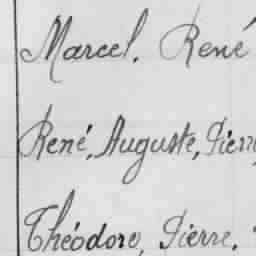 Marcel, René
René, Auguste, Pierre
Théodore, Pierre,